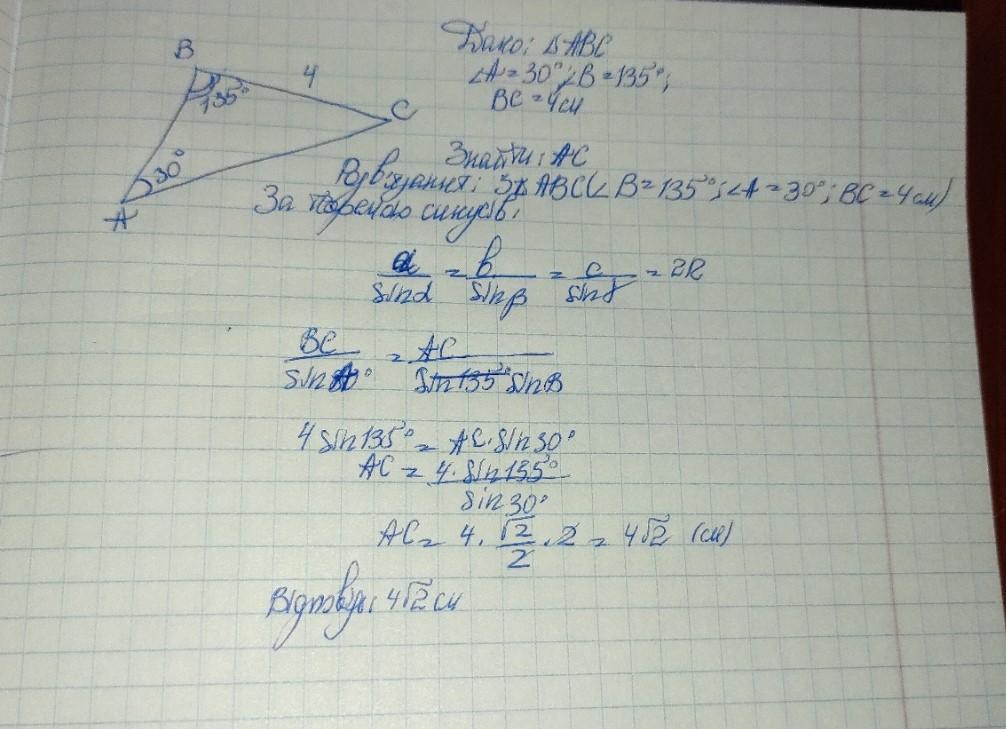 B
135°
4
C
30°
A
Дано: △ABC
∠A = 30°; ∠B = 135°;
BC = 4см
Знайти: AC
Розв'язання: З △ABC (∠B = 135°; ∠A = 30°; BC = 4 см)
За теоремою синусів:
a/sinα = b/sinβ = c/sinγ = 2R
BC/sinA = AC/sinB
4 sin135° = AC · sin30°
AC = 4 · sin135°/sin30°
AC = 4 · √2/2 · 2 = 4√2 (см)
Відповідь: 4√2 см